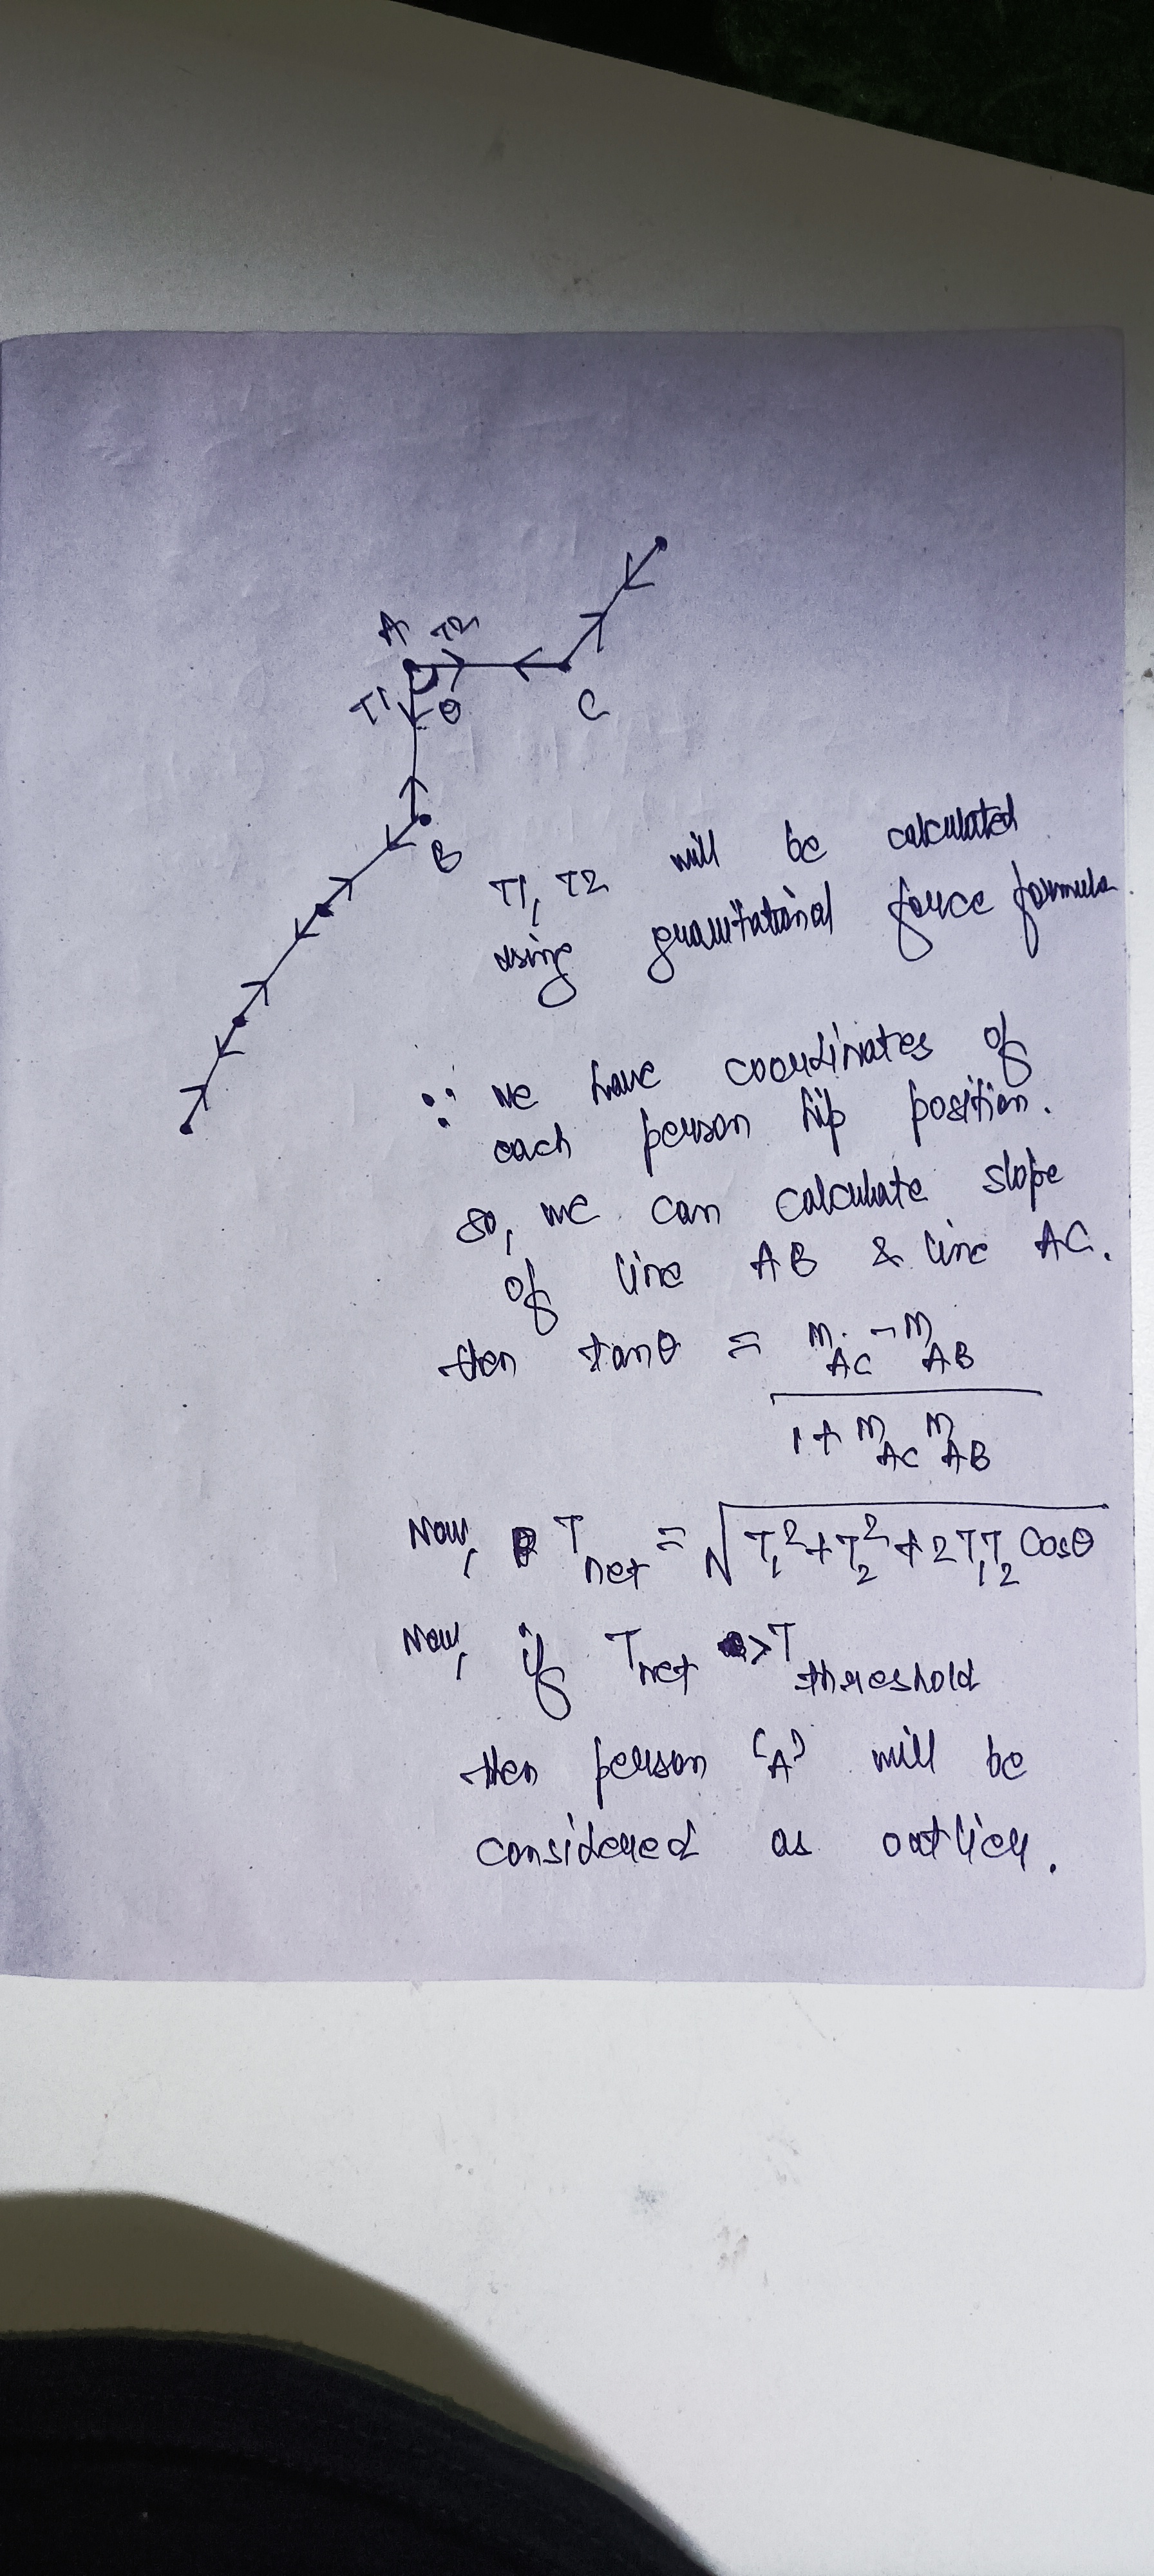 A T2
T1 θ C
B
T1, T2 will be calculated
using gravitational force formula.
∵ we have coordinates of
each person hip position.
so, we can calculate slope
of line AB & line AC.
then tanθ = m_AC - m_AB
1 + m_AC m_AB
Now, T_net = √T₁² + T₂² + 2T₁T₂ Cosθ
Now, if T_net > T_threshold
then person 'A' will be
considered as outlier.